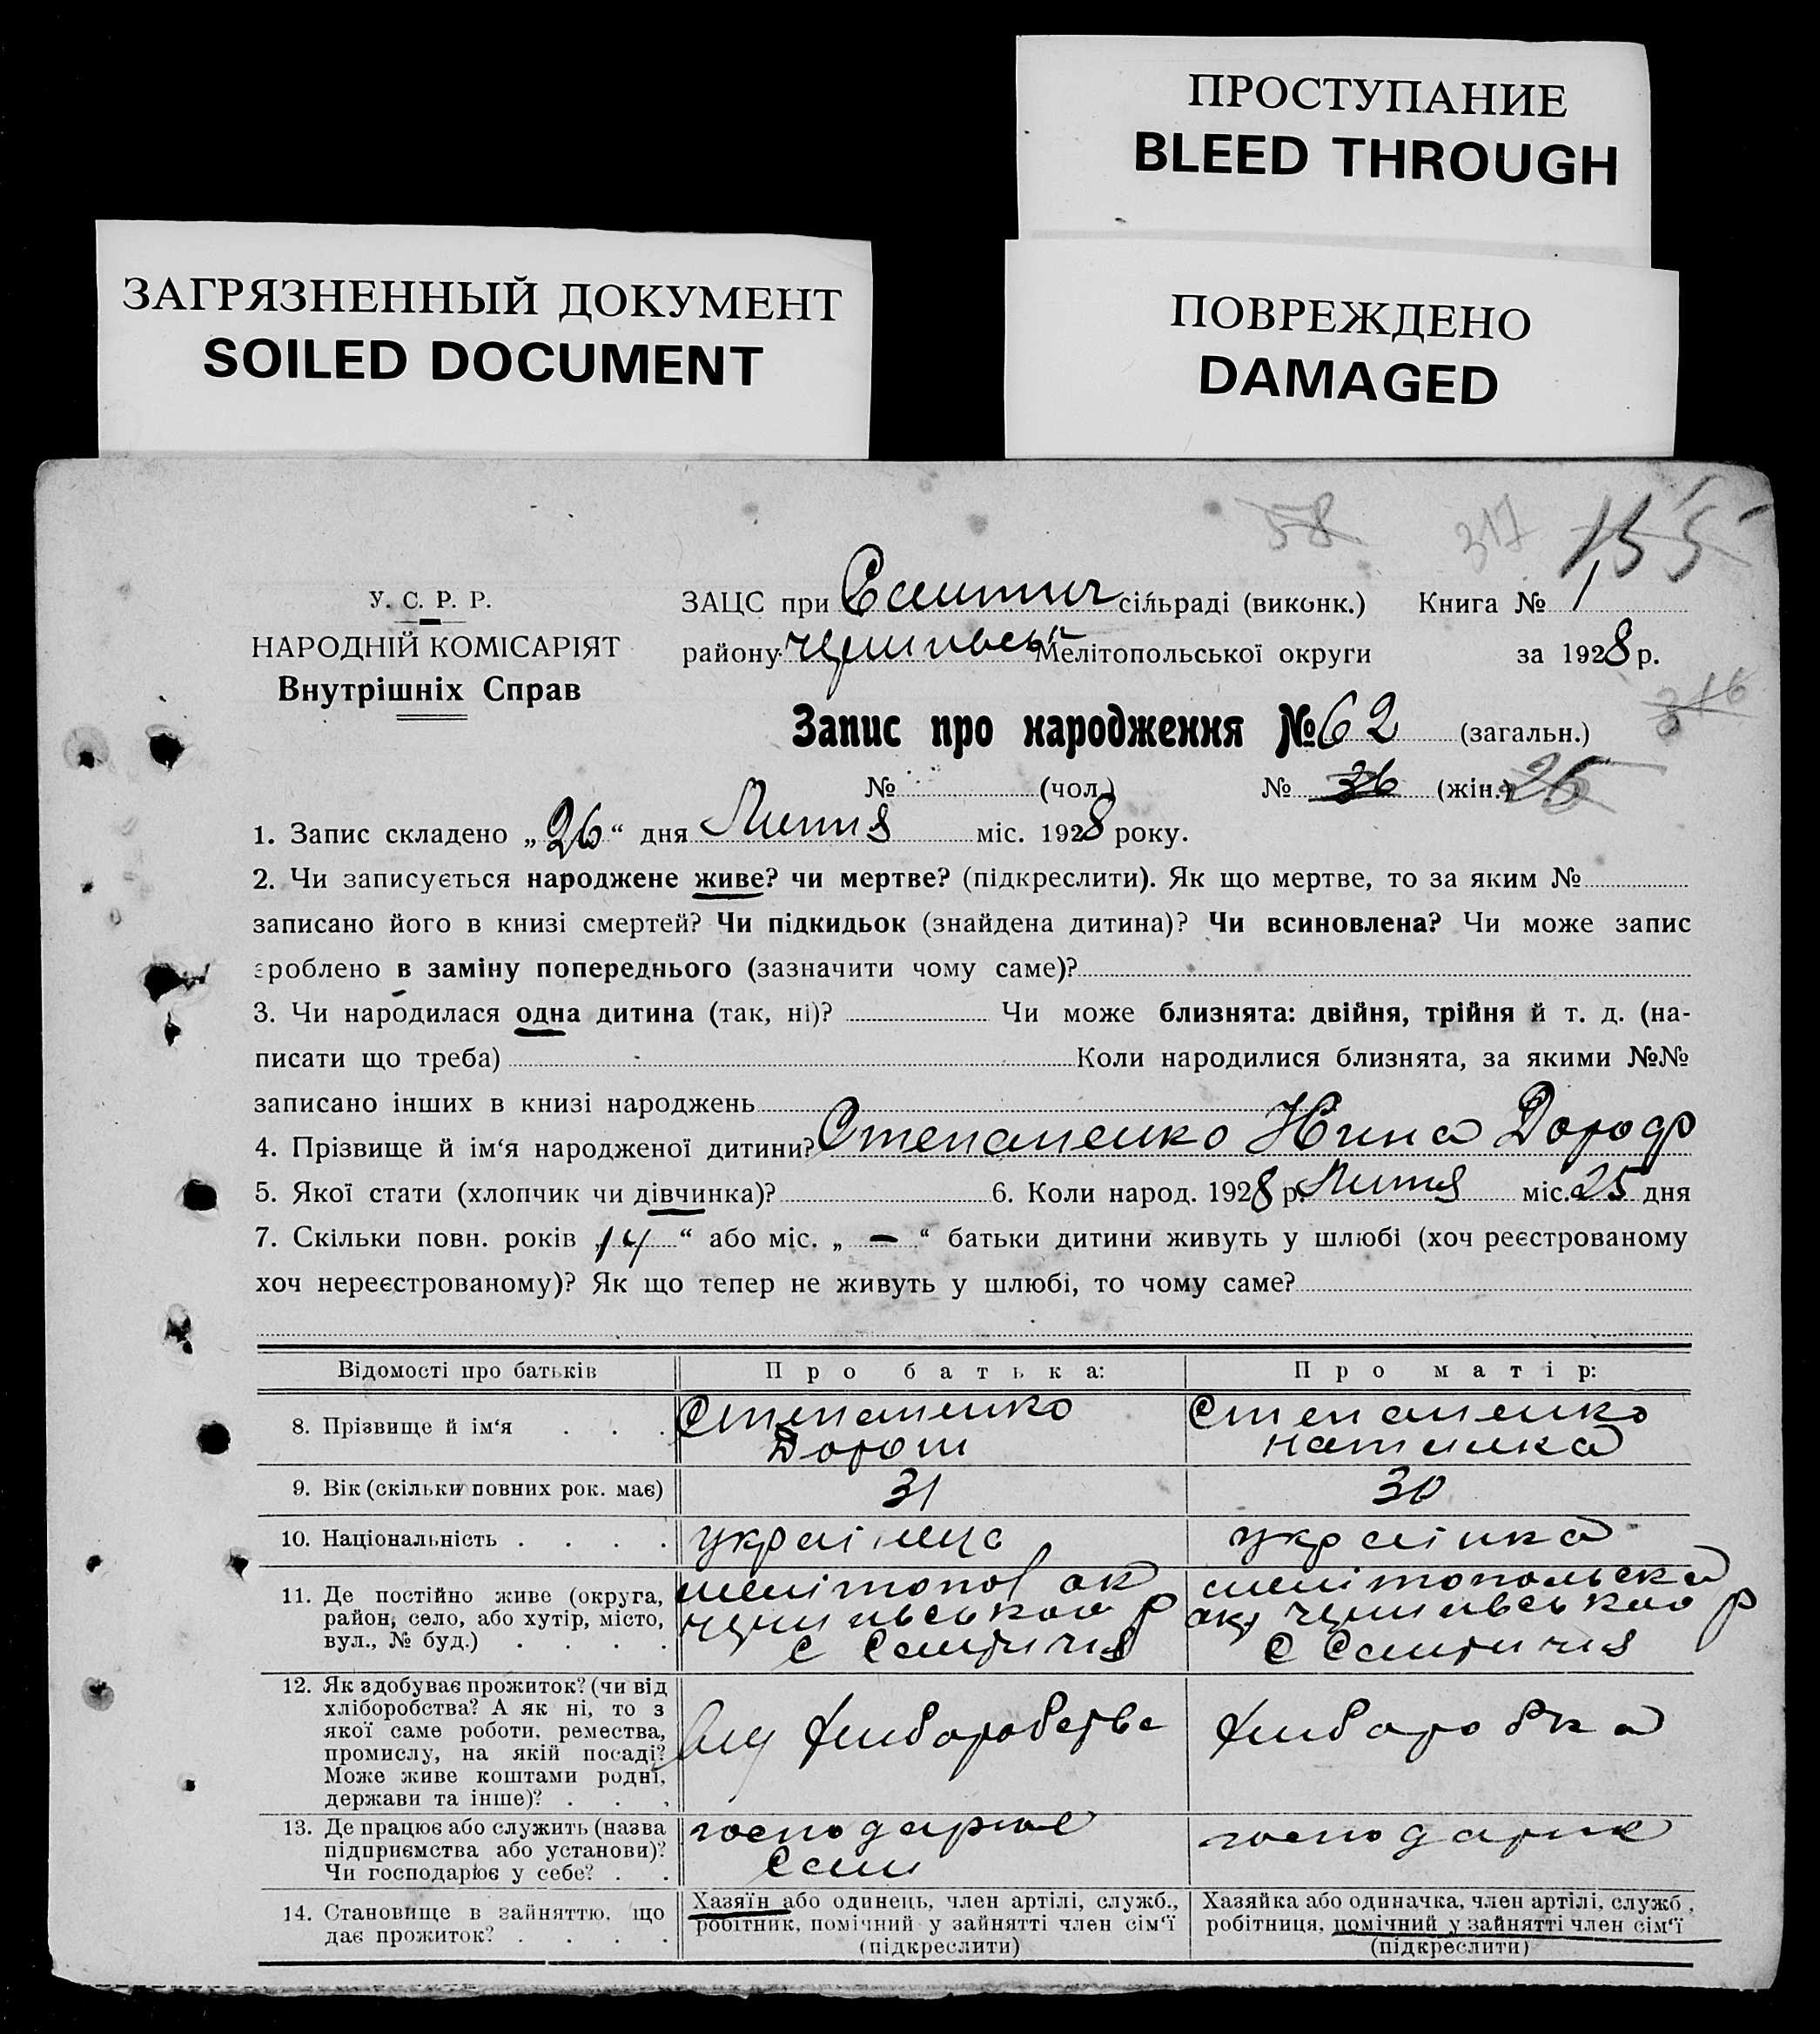 ПРОСТУПАНИЕ
BLEED THROUGH
ЗАГРЯЗНЕННЫЙ ДОКУМЕНТ
SOILED DOCUMENT
ПОВРЕЖДЕНО
DAMAGED
58 317 155
У. С. Р. Р.
НАРОДНІЙ КОМІСАРІЯТ
Внутрішніх Справ
ЗАЦС при сільраді (виконк.) Книга № 1
району Мелітопольської округи за 1928 р.
316
Запис про народження № 62 (загальн.)
№ (чол.) № 36 (жін.) 26
1. Запис складено „26“ дня Липня міс. 1928 року.
2. Чи записується народжене живе? чи мертве? (підкреслити). Як що мертве, то за яким №
записано його в книзі смертей? Чи підкидьок (знайдена дитина)? Чи всиновлена? Чи може запис
зроблено в заміну попереднього (зазначити чому саме)?
3. Чи народилася одна дитина (так, ні)? Чи може близнята: двійня, трійня й т. д. (на-
писати що треба) Коли народилися близнята, за якими №№
записано інших в книзі народжень
4. Прізвище й ім‘я народженої дитини? Степаненко Нина Дороф
5. Якої стати (хлопчик чи дівчинка)? 6. Коли народ. 1928 р. Липня міс. 25 дня
7. Скільки повн. років „14“ або міс. „—“ батьки дитини живуть у шлюбі (хоч реєстрованому
хоч нереєстрованому)? Як що тепер не живуть у шлюбі, то чому саме?
Відомості про батьків Про батька: Про матір:
8. Прізвище й ім‘я . . . Степаненко Степаненко
Дорош
9. Вік (скільки повних рок. має) 31 30
10. Національність . . . . україинец українка
11. Де постійно живе (округа, мелітопол ок мелітопольска
район, село, або хутір, місто, р ок р
вул., № буд.) . . . . с с
12. Як здобуває прожиток? (чи від
хліборобства? А як ні, то з
якої саме роботи, ремества, хлибороберва хлиборобка
промислу, на якій посаді?
Може живе коштами родні,
держави та інше)? . . .
13. Де працює або служить (назва господарює господарює
підприємства або установи)? Сам
Чи господарює у себе? . .
14. Становище в зайняттю, що Хазяїн або одинець, член артілі, служб., Хазяйка або одиначка, член артілі, служб.,
дає прожиток? . . . . робітник, помічний у зайнятті член сім‘ї робітниця, помічний у зайнятті член сім‘ї
(підкреслити) (підкреслити)